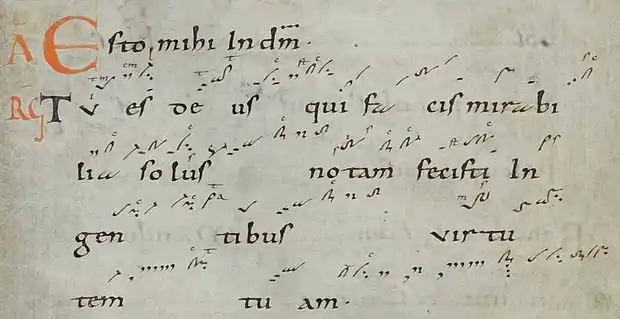 A Esto mihi In dm̅.
RG TV es de us qui fa cis mirabi
lia solus notam fecisti In
gen tibus virtu
tem tu am.